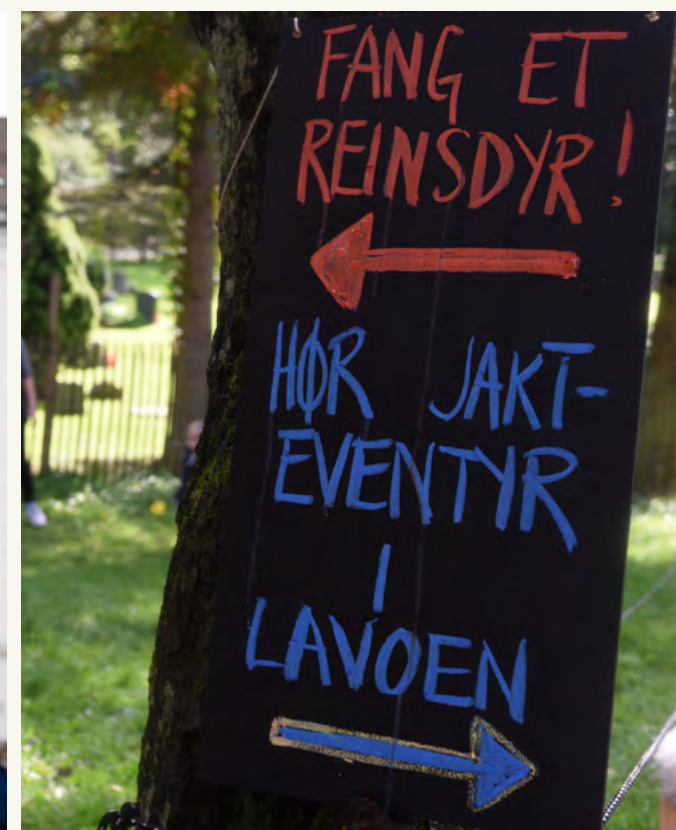 FANG ET
REINSDYR!
HØR JAKT-
EVENTYR
I
LAVOEN